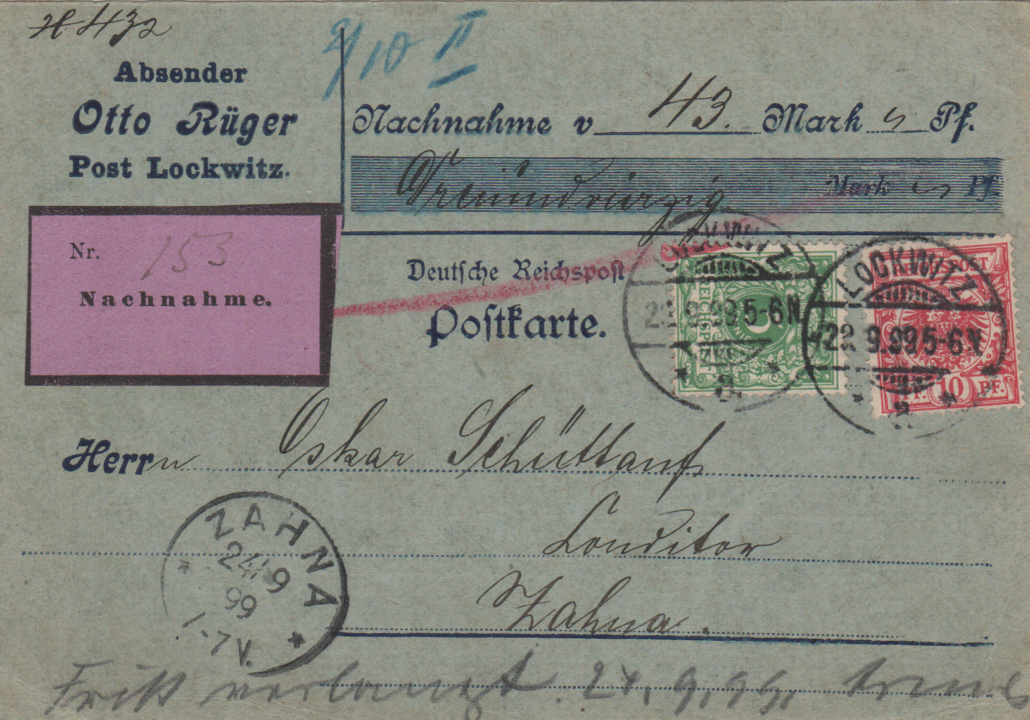 H 432
2/10 II
Absender
Otto Rüger
Post Lockwitz.
Nachnahme v 43. Mark Pf.
Dreiundvierzig Mark Pf
Nr. 153
Nachnahme.
Deutsche Reichspost
Postkarte.
LOCKWITZ
22.9.99 5-6N
a.
LOCKWITZ
22.9.99 5-6N
a
10 PF.
Herrn Oskar Schüttauf
Conditor
Zahna.
ZAHNA
24/9
99
7V.
Frist verlangt 24.9.99.